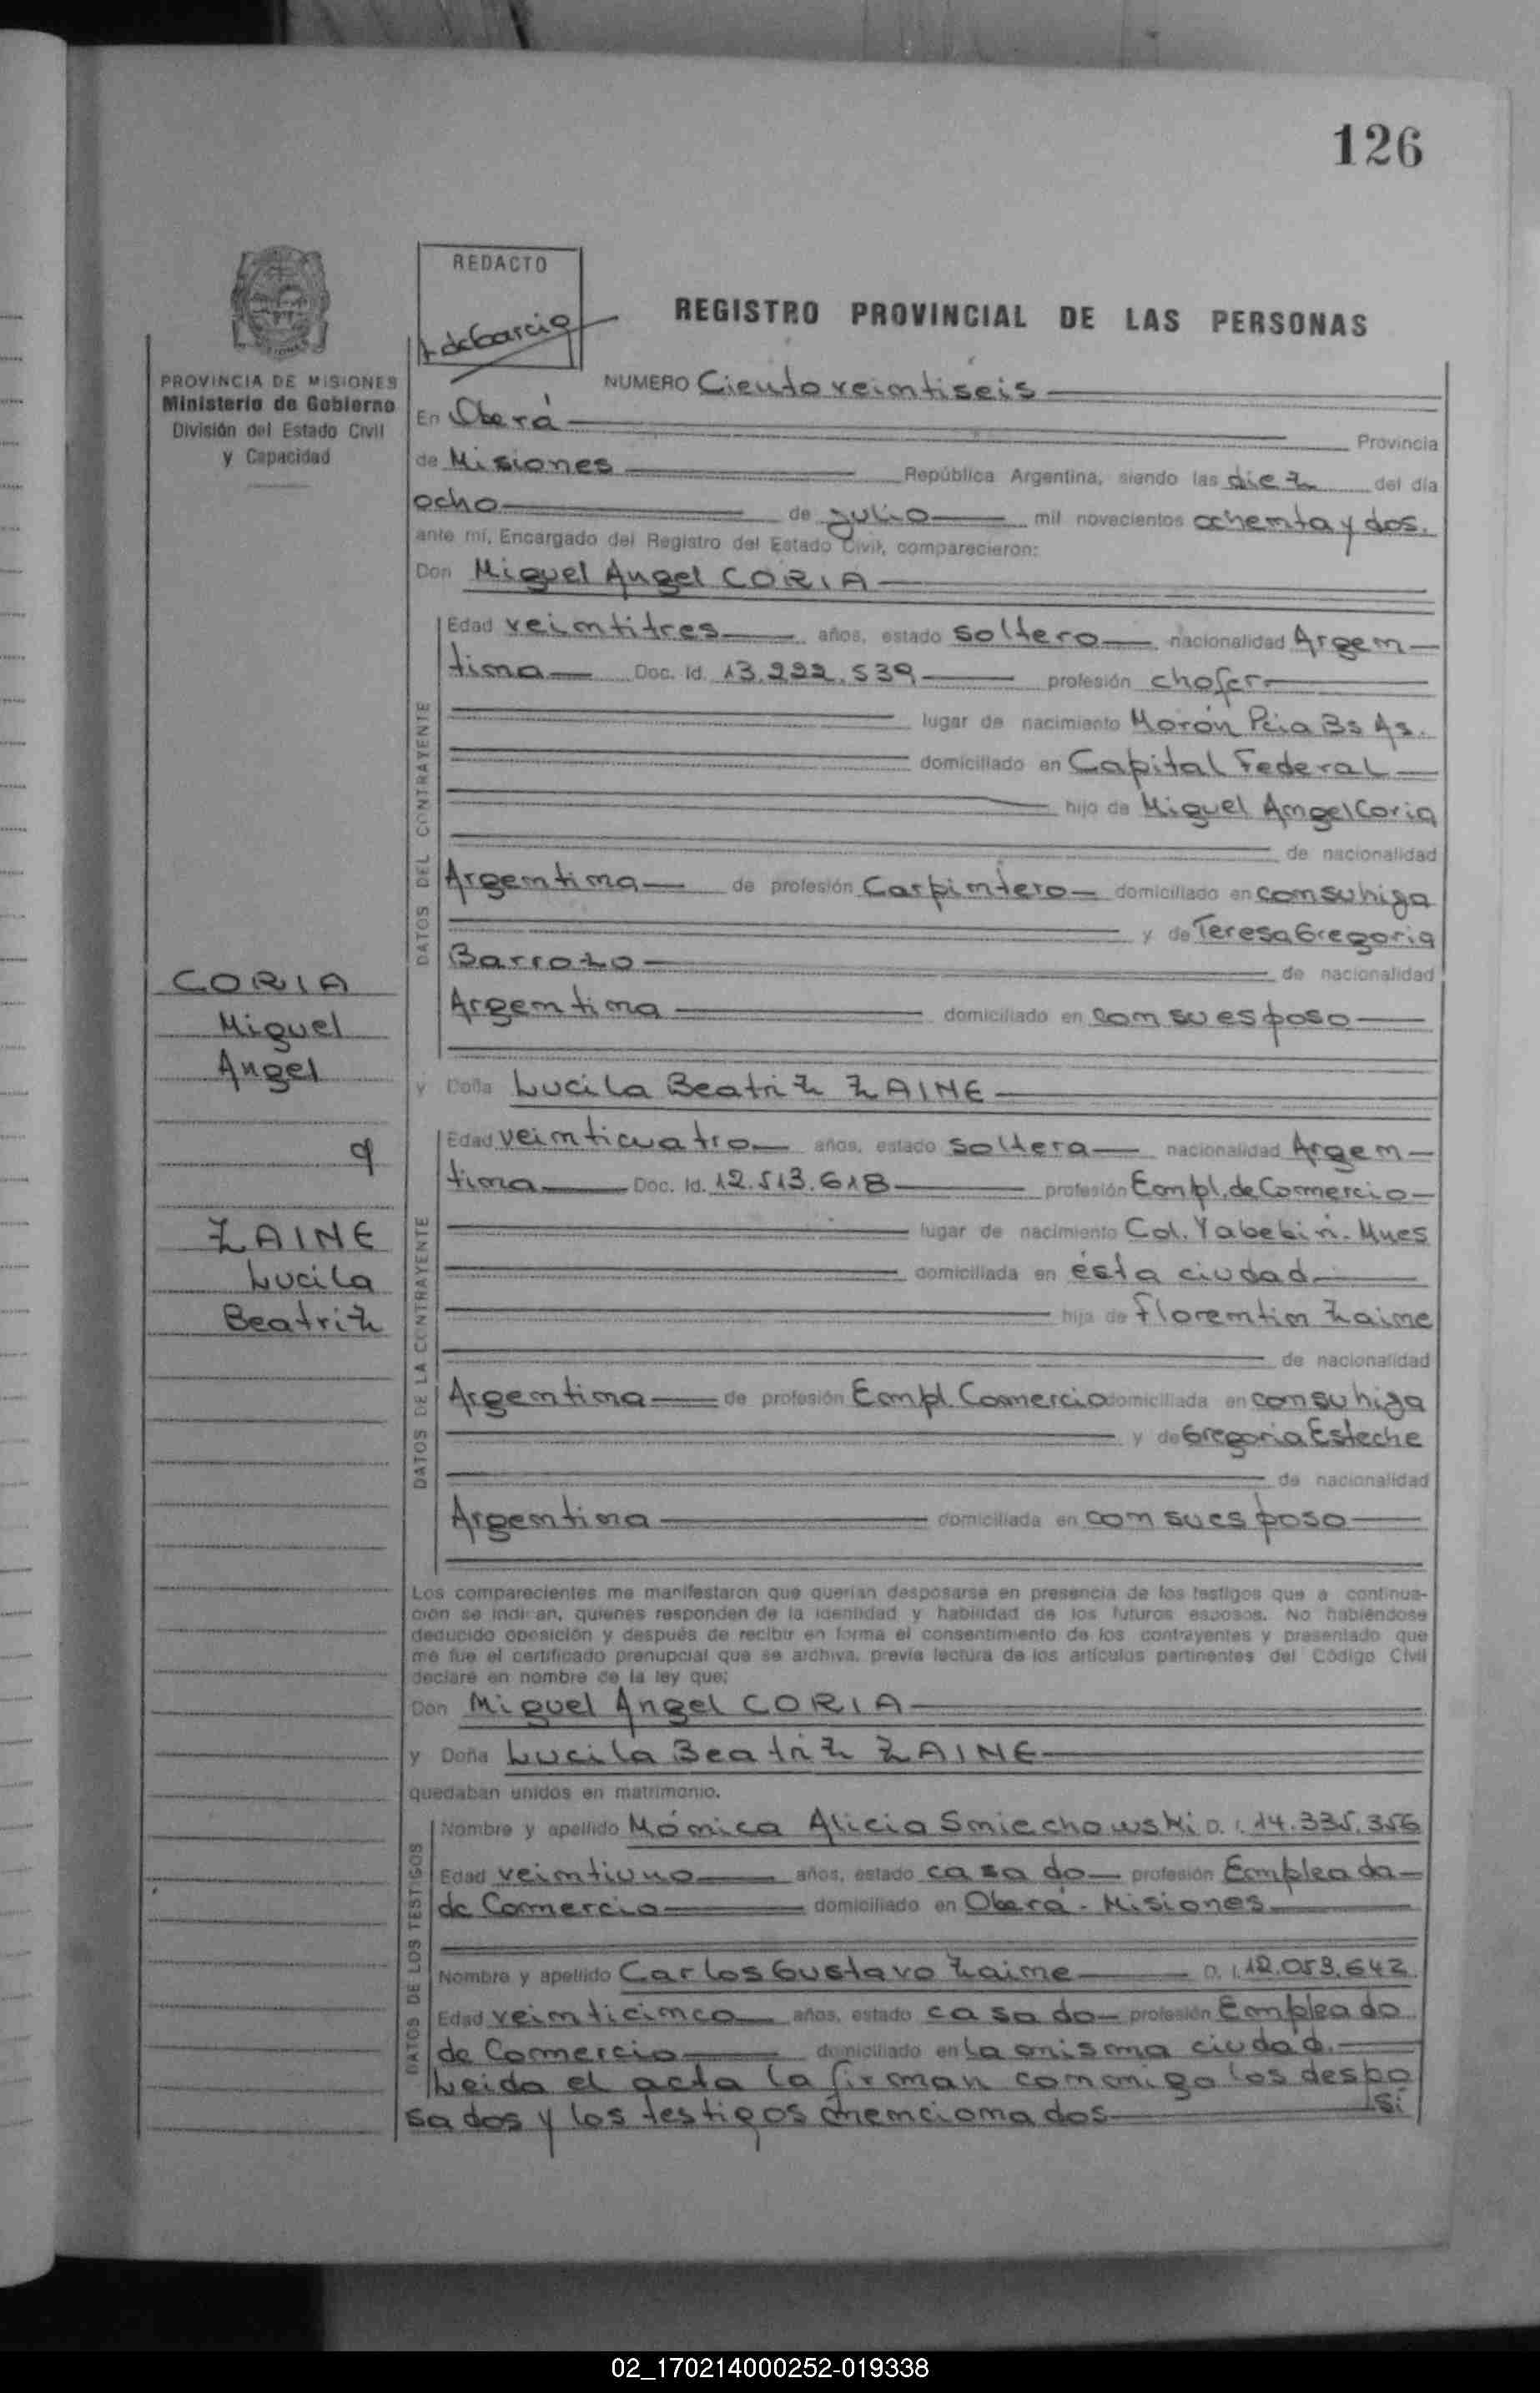 126
REDACTO
A de Garcia
REGISTRO PROVINCIAL DE LAS PERSONAS
PROVINCIA DE MISIONES
Ministerio de Gobierno
División del Estado Civil
y Capacidad
NUMERO Ciento veintiseis
En Oberá Provincia
de Misiones República Argentina, siendo las diez del día
ocho de julio mil novecientos ochenta y dos.
ante mí, Encargado del Registro del Estado Civil, comparecieron:
Don Miguel Angel CORIA
DATOS DEL CONTRAYENTE
Edad veintitres años, estado soltero nacionalidad Argen
tina Doc. Id. 13.222.539 profesión chofer
lugar de nacimiento Morón Pcia Bs As.
domiciliado en Capital Federal
hijo de Miguel Angel Coria
de nacionalidad
Argentina de profesión Carpintero domiciliado en con su hija
y de Teresa Gregoria
Barrozo de nacionalidad
Argentina domiciliado en con su esposo
CORIA
Miguel
Angel
y
ZAINE
Lucila
Beatriz
y Doña Lucila Beatriz ZAINE
DATOS DE LA CONTRAYENTE
Edad veinticuatro años, estado soltera nacionalidad Argen
tina Doc. Id. 12.513.618 profesión Empl. de Comercio
lugar de nacimiento Col. Yabebiri. Mnes
domiciliada en ésta ciudad
hija de Florentin Zaine
de nacionalidad
Argentina de profesión Empl. Comercio domiciliada en con su hija
y de Gregoria Esteche
de nacionalidad
Argentina domiciliada en con su esposo
Los comparecientes me manifestaron que querían desposarse en presencia de los testigos que a continua-
ción se indican, quienes responden de la identidad y habilidad de los futuros esposos. No habiéndose
deducido oposición y después de recibir en forma el consentimiento de los contrayentes y presentado que
me fue el certificado prenupcial que se archiva, previa lectura de los artículos pertinentes del Código Civil
declaré en nombre de la ley que:
Don Miguel Angel CORIA
y Doña Lucila Beatriz ZAINE
quedaban unidos en matrimonio.
DATOS DE LOS TESTIGOS
Nombre y apellido Mónica Alicia Smiechowski D. I. 14.335.356
Edad veintiuno años, estado casado profesión Empleada
de Comercio domiciliado en Oberá - Misiones
Nombre y apellido Carlos Gustavo Zaine D. I. 12.053.642
Edad veinticinco años, estado casado profesión Empleado
de Comercio domiciliado en la misma ciudad.
Leida el acta la firman conmigo los despo
sados y los testigos mencionados si
02_170214000252-019338